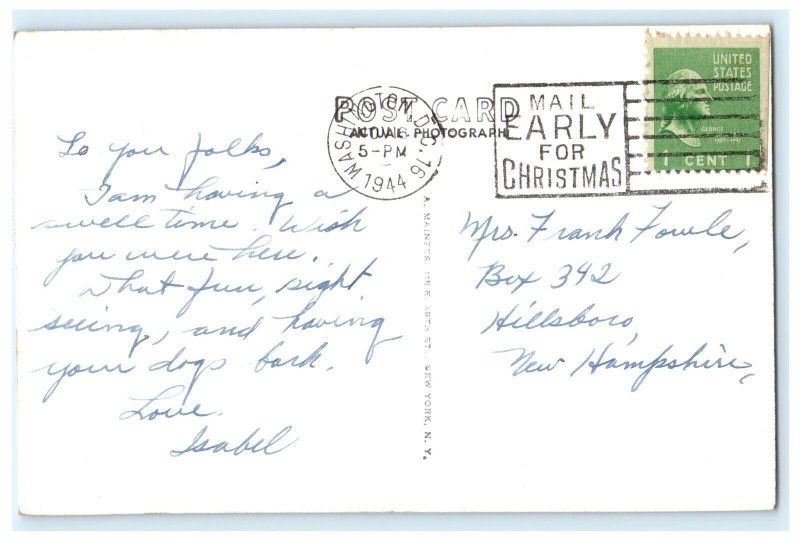 POST CARD
ACTUAL PHOTOGRAPH
WASHINGTON, D.C. 16
5-PM
1944
MAIL
EARLY
FOR
CHRISTMAS
UNITED
STATES
POSTAGE
GEORGE
1 CENT 1
To you folks,
I am having a
swell time. Wish
you were here.
What fun, sight
seeing, and having
your dogs bark.
Love.
Isabel
A. MAINZER, 118 E. 28TH ST. NEW YORK, N. Y.
Mrs. Frank Fowle,
Box 342
Hillsboro,
New Hampshire,